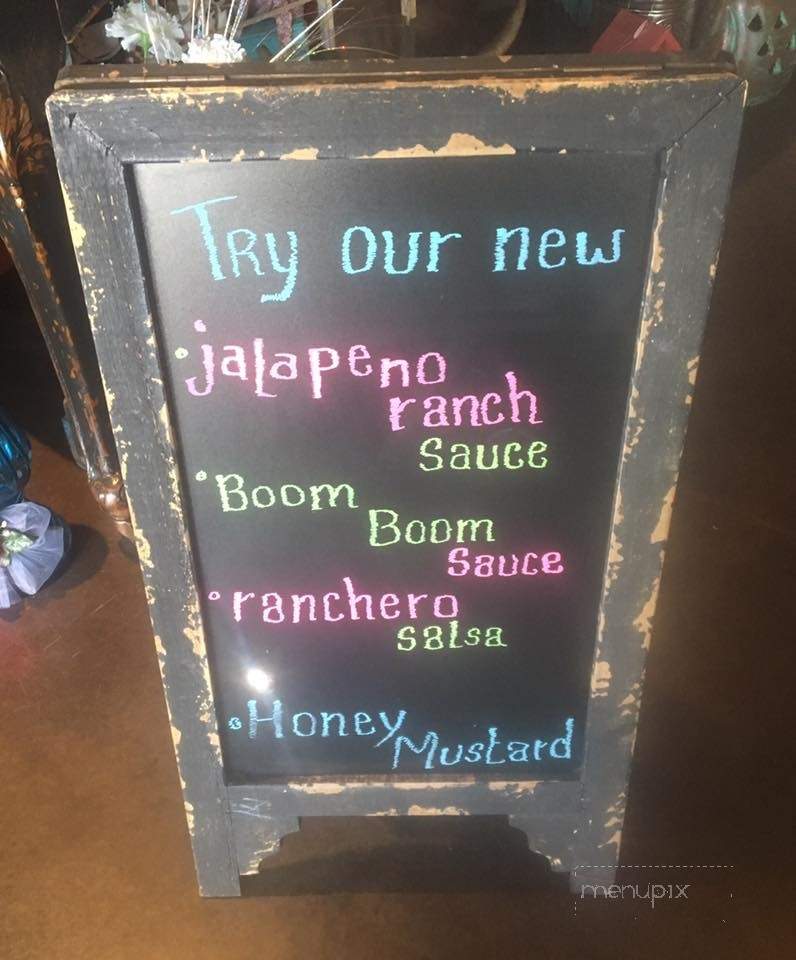 Try our new
• jalapeno
ranch
Sauce
• Boom
Boom
Sauce
• ranchero
salsa
• Honey
Mustard
menupix